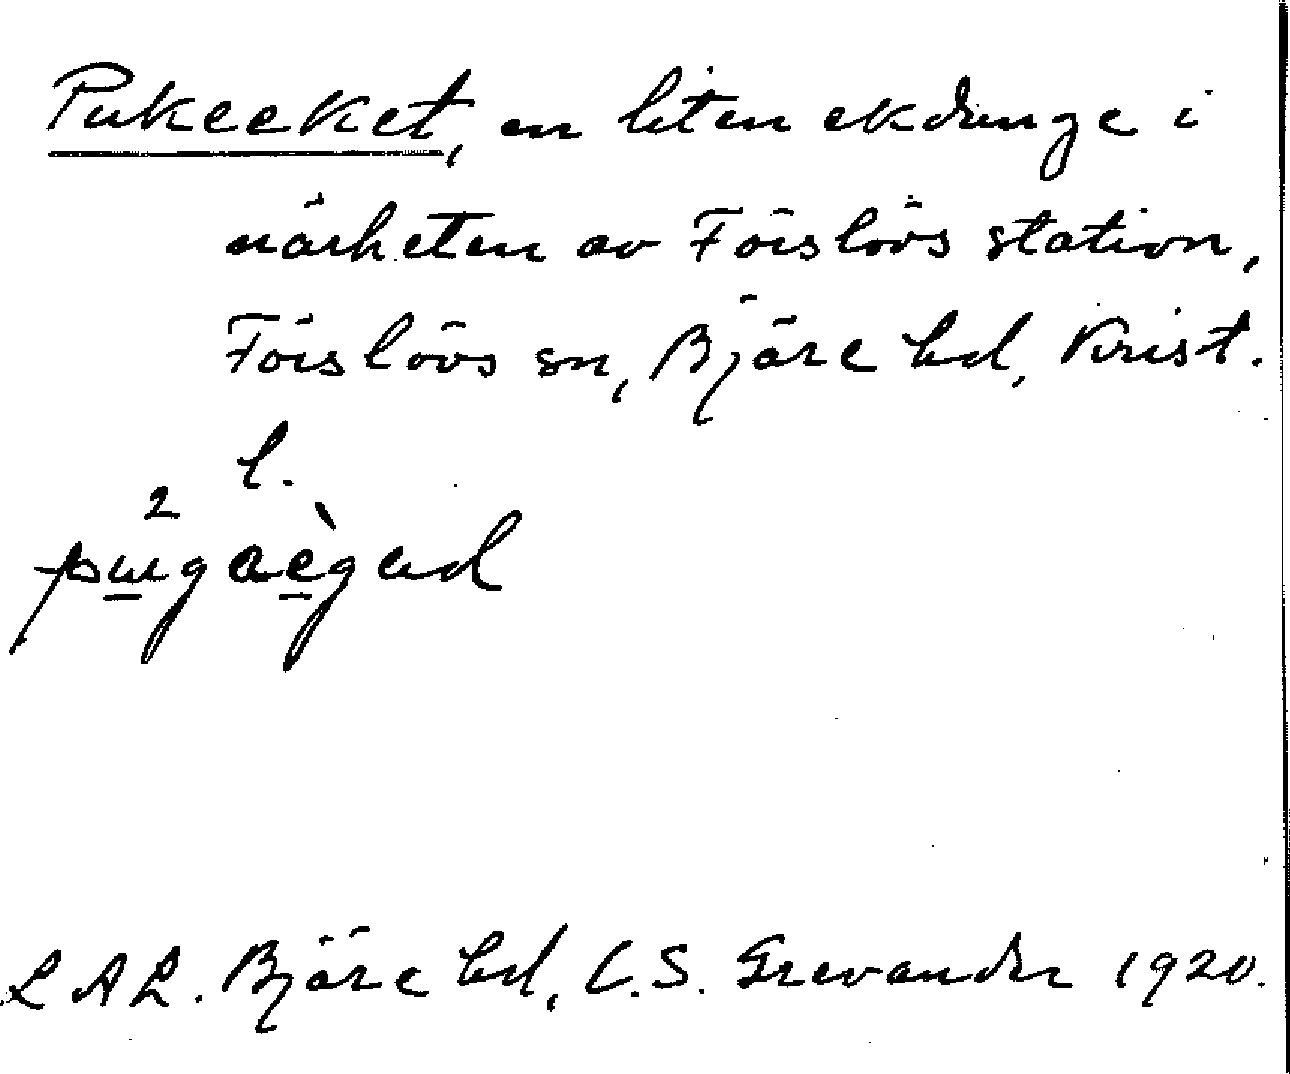 Pukeeket, en liten ekdunge i
närheten av Förslövs station,
Förslövs sn, Bjäre hd, Krist.
l.
LAL. Bjäre hd, C.S. Grevander 1920.